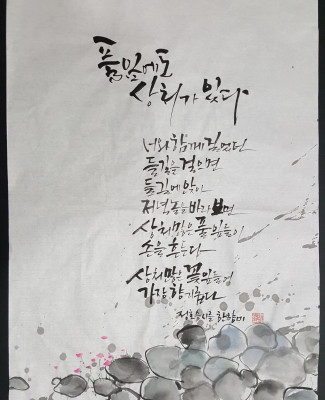 풀잎에도
상처가 있다
너와 함께 걸었던
들길을 걸으면
들길에 앉아
저녁놀을 바라보면
상처 많은 풀잎들이
손을 흔든다
상처 많은 꽃잎들이
가장 향기롭다
정호승 시를